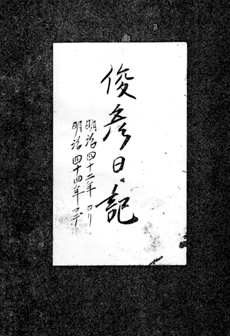 俊彦日記
明治四十二年ヨリ
明治四十四年マデ